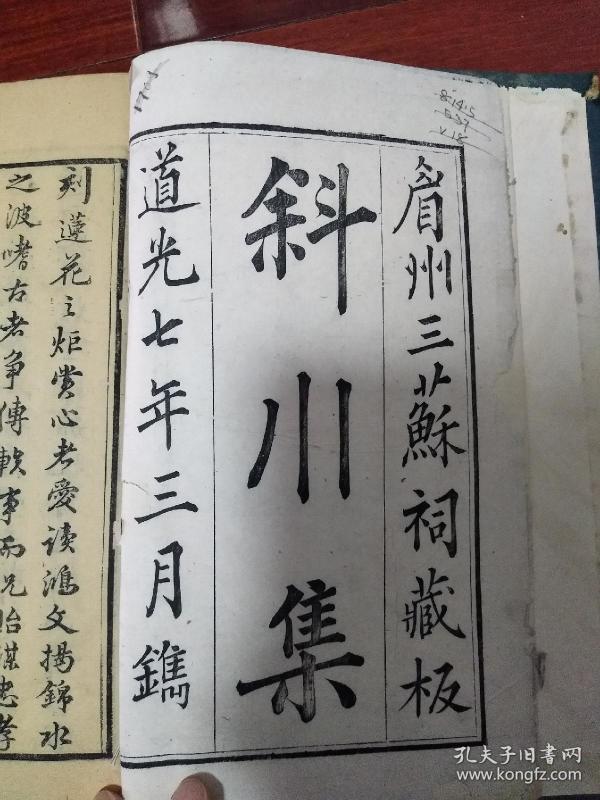 眉州三蘇祠藏板
斜川集
道光七年三月鐫
刻蓮花之炬賞心者愛讀鴻文揚錦水
之波嗜古者爭傳軼事而兄貽謀忠孝
8·14·5
837
V 15
孔夫子旧书网
www.kongfz.com